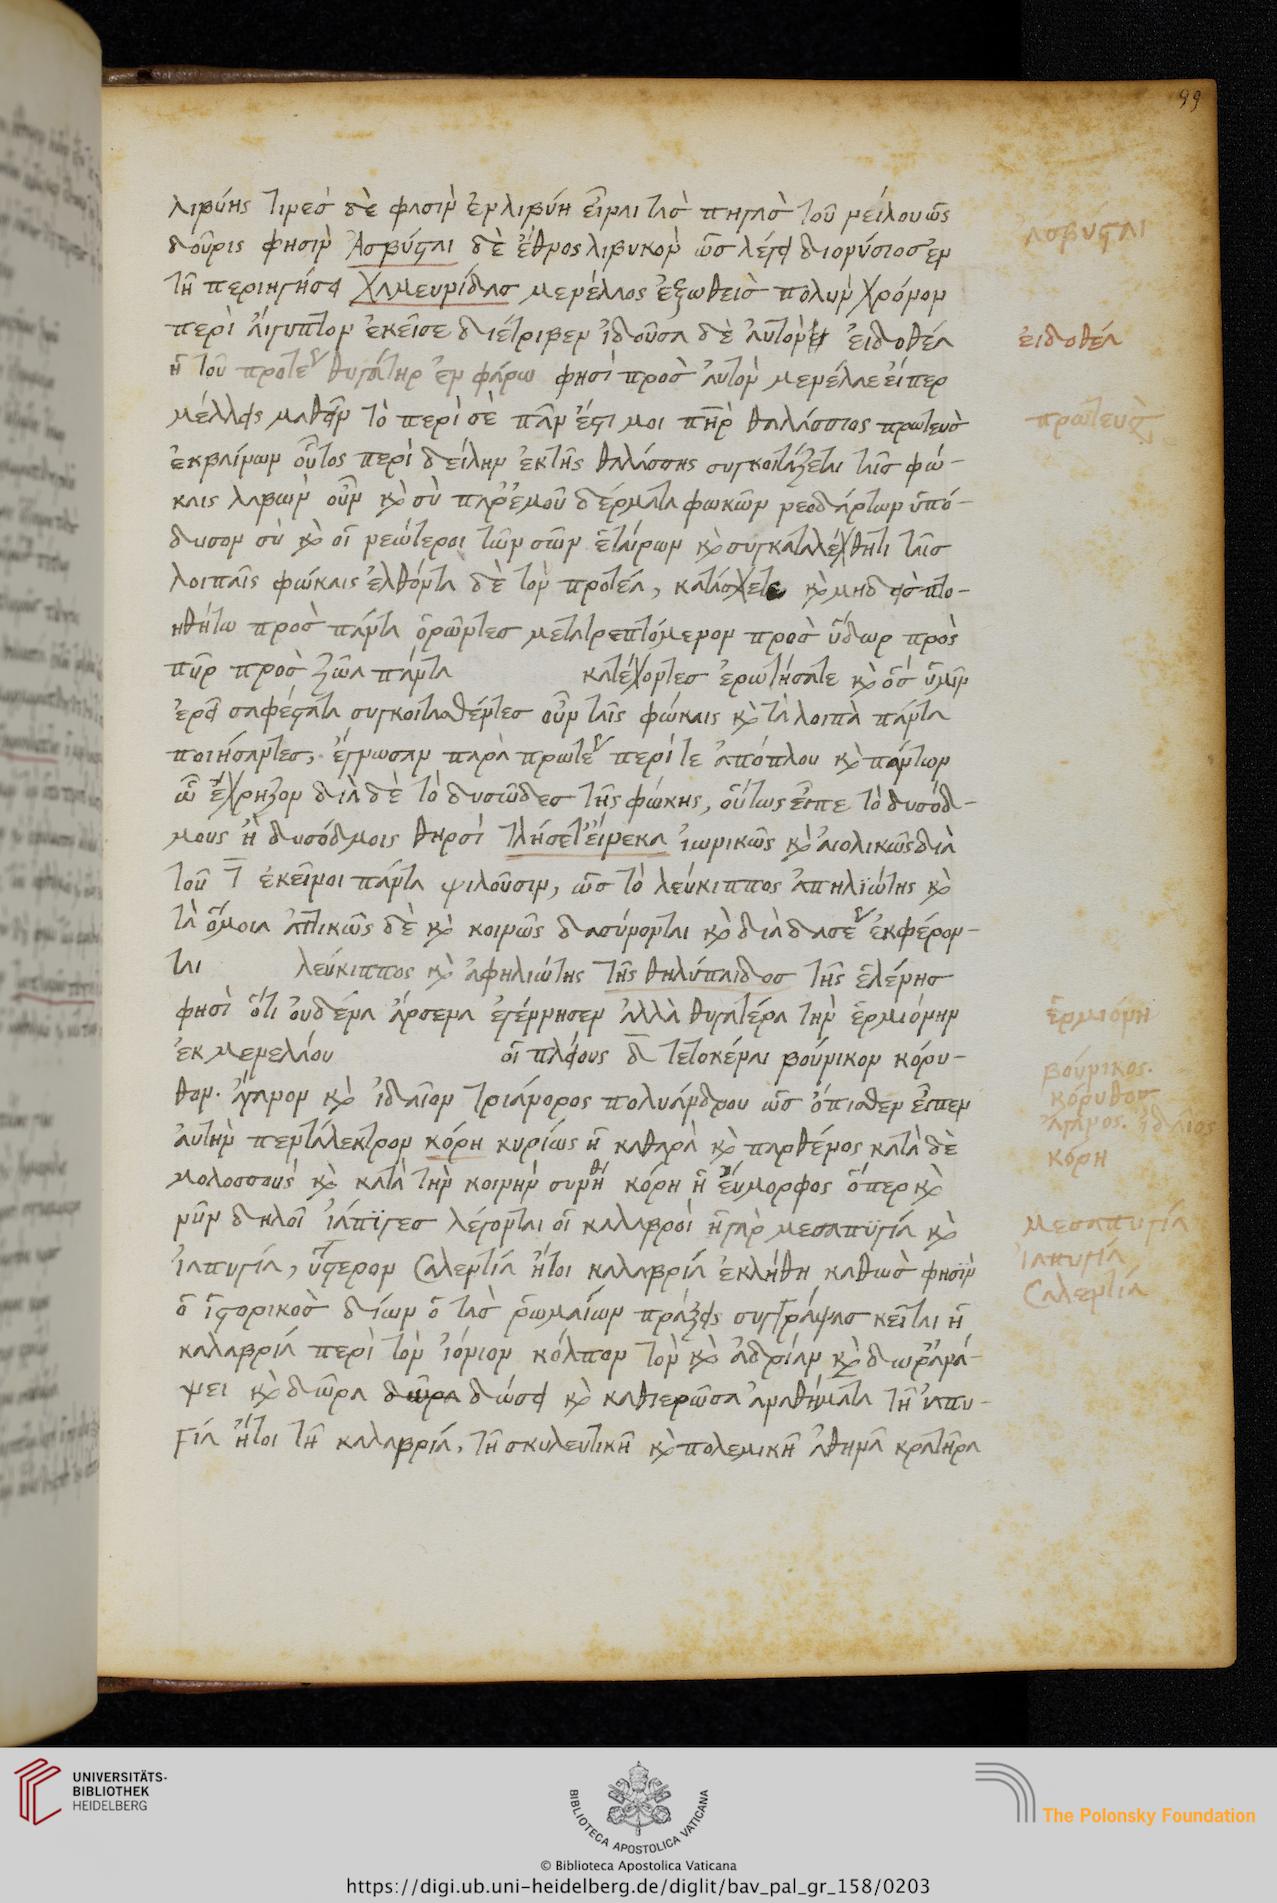 99
λιβύης τινὲς δὲ φασὶν ἐν λιβύη εἶναι τὰς πηγὰς τοῦ νείλου ὡς
δοῦρις φησὶν Ἀσβύσται δὲ ἔθνος λιβυκὸν ὡς λέγει διονύσιος ἐν
τῆ περιηγήσει χαμευνάδας μενέλαος ἐξωθεὶς πολὺν χρόνον
περὶ αἴγυπτον ἐκεῖσε διέτριβεν ἰδοῦσα δὲ αὐτὸν εἰδοθέα
ἡ τοῦ πρωτέ θυγάτηρ ἐν φάρω φησὶ πρὸς αὐτὸν μενέλαε εἴπερ
μέλλεις μαθεῖν τὸ περὶ σὲ πᾶν ἔστι μοι πηρ θαλάσσιος πρωτευς
ἐκβαίνων οὗτος περὶ δείλην ἐκ τῆς θαλάσσης συγκοιτάζεται ταῖς φώ-
καις λαβὼν οὖν καὶ σὺ παρ' ἐμοῦ δέρματα φωκῶν νεοδάρτων ὑπό-
δυσον σὺ καὶ οἱ νεώτεροι τῶν σῶν ἑταίρων καὶ συγκαταλέχθητι ταῖς
λοιπαῖς φώκαις ἐλθόντα δὲ τὸν πρωτέα, κατάσχετε καὶ μηδεὶς πτο-
ηθήτω πρὸς πάντα ὁρῶντες μετατρεπτόμενον πρὸς ὕδωρ πρὸς
πῦρ πρὸς ζῶα πάντα κατέχοντες ἐρωτήσατε καὶ ὃς ὑμῖν
ἐρεῖ σαφέστατα συγκοιτασθέντες οὖν ταῖς φώκαις καὶ τὰ λοιπὰ πάντα
ποιήσαντες, ἔγνωσαν παρὰ πρωτέ περί τε ἀπόπλου καὶ πάντων
ὧν ἔχρηζον διὰ δὲ τὸ δυσῶδες τῆς φώκης, οὕτως εἶπε τὸ δυσόδ-
μους ἢ δυσόδμοις θηρσὶ τλήσετ' εἵνεκα ἰωνικῶς καὶ αἰολικῶς διὰ
τοῦ τ ἐκεῖνοι πάντα ψιλοῦσιν, ὡς τὸ λεύκιππος ἀπηλιώτης καὶ
τὰ ὅμοια ἀττικῶς δὲ καὶ κοινῶς δασύνονται καὶ διὰ δασέ ἐκφέρον-
ται λεύκιππος καὶ ἀφηλιώτης τῆς θηλύπαιδος τῆς ἑλένης
φησὶ ὅτι οὐδένα ἄρσενα ἐγέννησεν ἀλλὰ θυγατέρα τὴν ἑρμιόνην
ἐκ μενελάου οἱ πλείους δ τετοκέναι βούνικον κόρυ-
θον. ἄγανον καὶ ἰδαῖον τριάνορος πολυάνδρου ὡς ὄπισθεν εἶπεν
αὐτὴν πενταλεκτρον κόρη κυρίως ἡ καθαρὰ καὶ παρθένος κατὰ δὲ
μολοσσοὺς καὶ κατὰ τὴν κοινὴν συνήθ κόρη ἡ εὔμορφος ὅπερ καὶ
νῦν δηλοῖ ἰάπυγες λέγονται οἱ καλαβροὶ ἡ γὰρ μεσαπυγία καὶ
ἰαπυγία, ὕστερον σαλεντία ἤτοι καλαβρία ἐκλήθη καθὼς φησὶν
ὁ ἱστορικὸς δίων ὁ τὰς ῥωμαίων πράξεις συγγράψας κεῖται ἡ
καλαβρία περὶ τὸν ἰόνιον κόλπον τὸν καὶ ἀδρίαν καὶ δωρ' ἀνά-
ψει καὶ δῶρα δῶρα δώσει καὶ καθιερῶσα ἀναθήματα τῆ ἰαπυ-
γία ἤτοι τῆ καλαβρία, τῆ σκυλευτικῆ καὶ πολεμικῆ ἀθηνᾶ κρατῆρα
ἀσβυσται
εἰδοθέα
πρωτευς
ἑρμιόνη
βούνικος.
κόρυθος
ἄγανος. ἰδαῖος
κόρη
μεσαπυγία
ἰαπυγία
σαλεντία
UNIVERSITÄTS-
BIBLIOTHEK
HEIDELBERG
BIBLIOTECA APOSTOLICA VATICANA
The Polonsky Foundation
© Biblioteca Apostolica Vaticana
https://digi.ub.uni-heidelberg.de/diglit/bav_pal_gr_158/0203